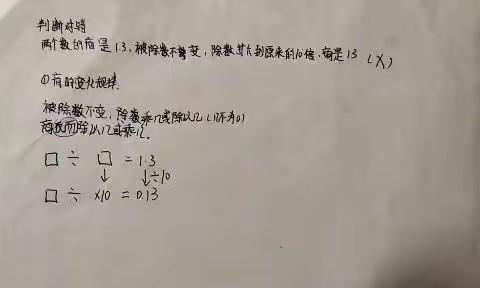 判断对错
两个数的商是1.3,被除数不变,除数扩大到原来的10倍,商是13 (X)
①商的变化规律.
被除数不变,除数乘几或除以几(几不为0)
商反而除以几或乘几.
□ ÷ □ = 1.3
↓ ↓÷10
□ ÷ ×10 = 0.13